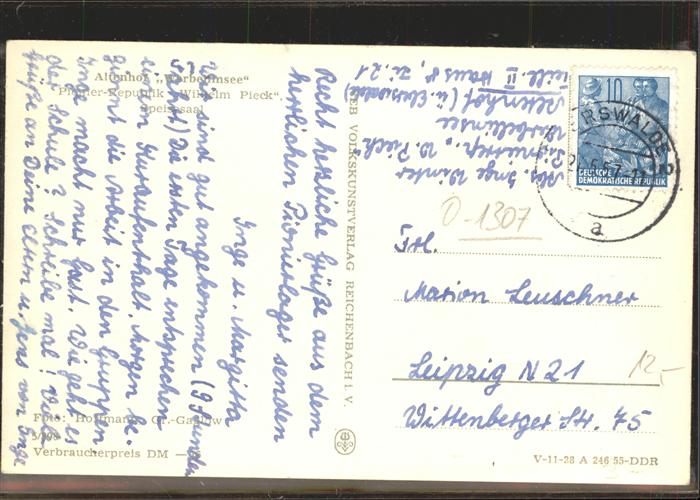 Altenhof „Werbellinsee"
Pionier-Republik „Wilhelm Pieck"
Speisesaal
Recht herzliche Grüße aus dem
herrlichen Pionierlager senden
Inge u. Margitta
Wir sind gut angekommen (9 Stunden
Fahrt) Die ersten Tage entsprechen
einem Kuraufenthalt. Morgen
beginnt die Arbeit in den Gruppen
Inge macht nur Gast. Wie geht es in
der Schule? Schreibe mal! Viele
Grüße an Deine Eltern u. Jens von Inge
Foto: Hoffmann, Gr.-Gaglow
Verbraucherpreis DM
VEB VOLKSKUNSTVERLAG REICHENBACH I. V.
Abs. Inge Winter
Pionierrep. „W. Pieck"
Werbellinsee
Altenhof (ü. Eberswalde)
Teill. II Haus 8, Zi. 21
10
DEUTSCHE
DEMOKRATISCHE REPUBLIK
ERSWALDE
a
0-1307
Frl.
Marion Leuschner
Leipzig N 21
Wittenberger Str. 75
12,-
V-11-28 A 246 55-DDR